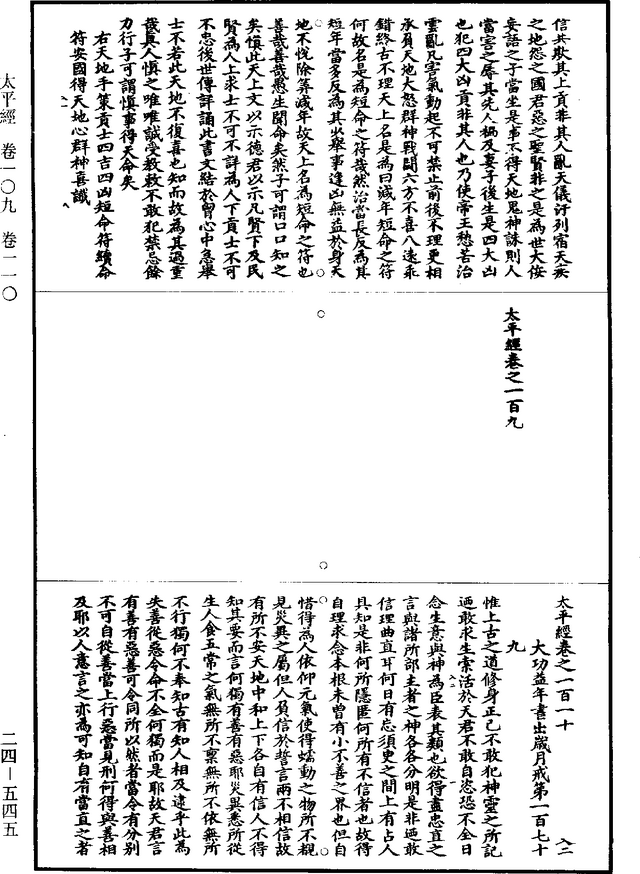 太平經 卷一〇九 卷一一〇
二四—五四五
信共欺其上貢非其人亂天儀汙列宿天疾
之地怨之國君惡之聖賢非之是為世大佞
妄語之子當坐是事不得天地鬼神誅則人
當害之辱其先人禍及妻子後生是四大凶
也犯四大凶貢非其人也乃使帝王愁苦治
雲亂凡害氣動起不可禁止前後不理更相
承負天地大怒群神戰鬪六方不喜八遠乖
錯終古不理天上名是為曰減年短命之符
何故名是為短命之符哉然治當長反為其
短年當多反為其少舉事逢凶無益於身天
地不悅除筭減年故天上名為短命之符也
善哉善哉愚生聞命矣然子可謂口口知之
矣慎此天上文以示德君以示凡賢下及民
賢為人上求士不可不詳為人下貢士不可
不忠後世傳誦此書文結於胷心中急舉
士不若此天地不復喜也知而故為其過重
哉真人慎之唯唯誠受教敕不敢犯禁忌餘
力行子可謂慎事得天命矣
右天地手策貢士四吉四凶短命符續命
符安國得天地心群神喜讖
太平經卷之一百九
太平經卷之一百一十
大功益年書出歲月戒第一百七十
九
惟上古之道修身正己不敢犯神靈之所記
迺敢求生索活於天君不敢自恣恐不全日
念生意與神為臣表其類也欲得盡忠直之
言與諸所部主者之神各各分明是非迺敢
信理曲直耳何日有忘須臾之間上有占人
具知是非何所隱匿何所有不信者也故得
自理求念本根未曾有小不善之界也但自
惜得為人依仰元氣使得蠕動之物所不覩
見災異之屬但人負信於誓言兩不相信故
有所不安天地中和上下各自有信人不得
知其要而言何獨有善有惡耶災異悉所從
生人食五常之氣無所不稟無所不依無所
不行獨何不奉知古有知人相及逮乎此為
失善從惡令命不全何獨而是耶故天君言
有善有惡善可令同所以然者當令有分別
不可自從善當上行惡當見刑何得與善相
及耶以人意言之亦為可知自有當直之者